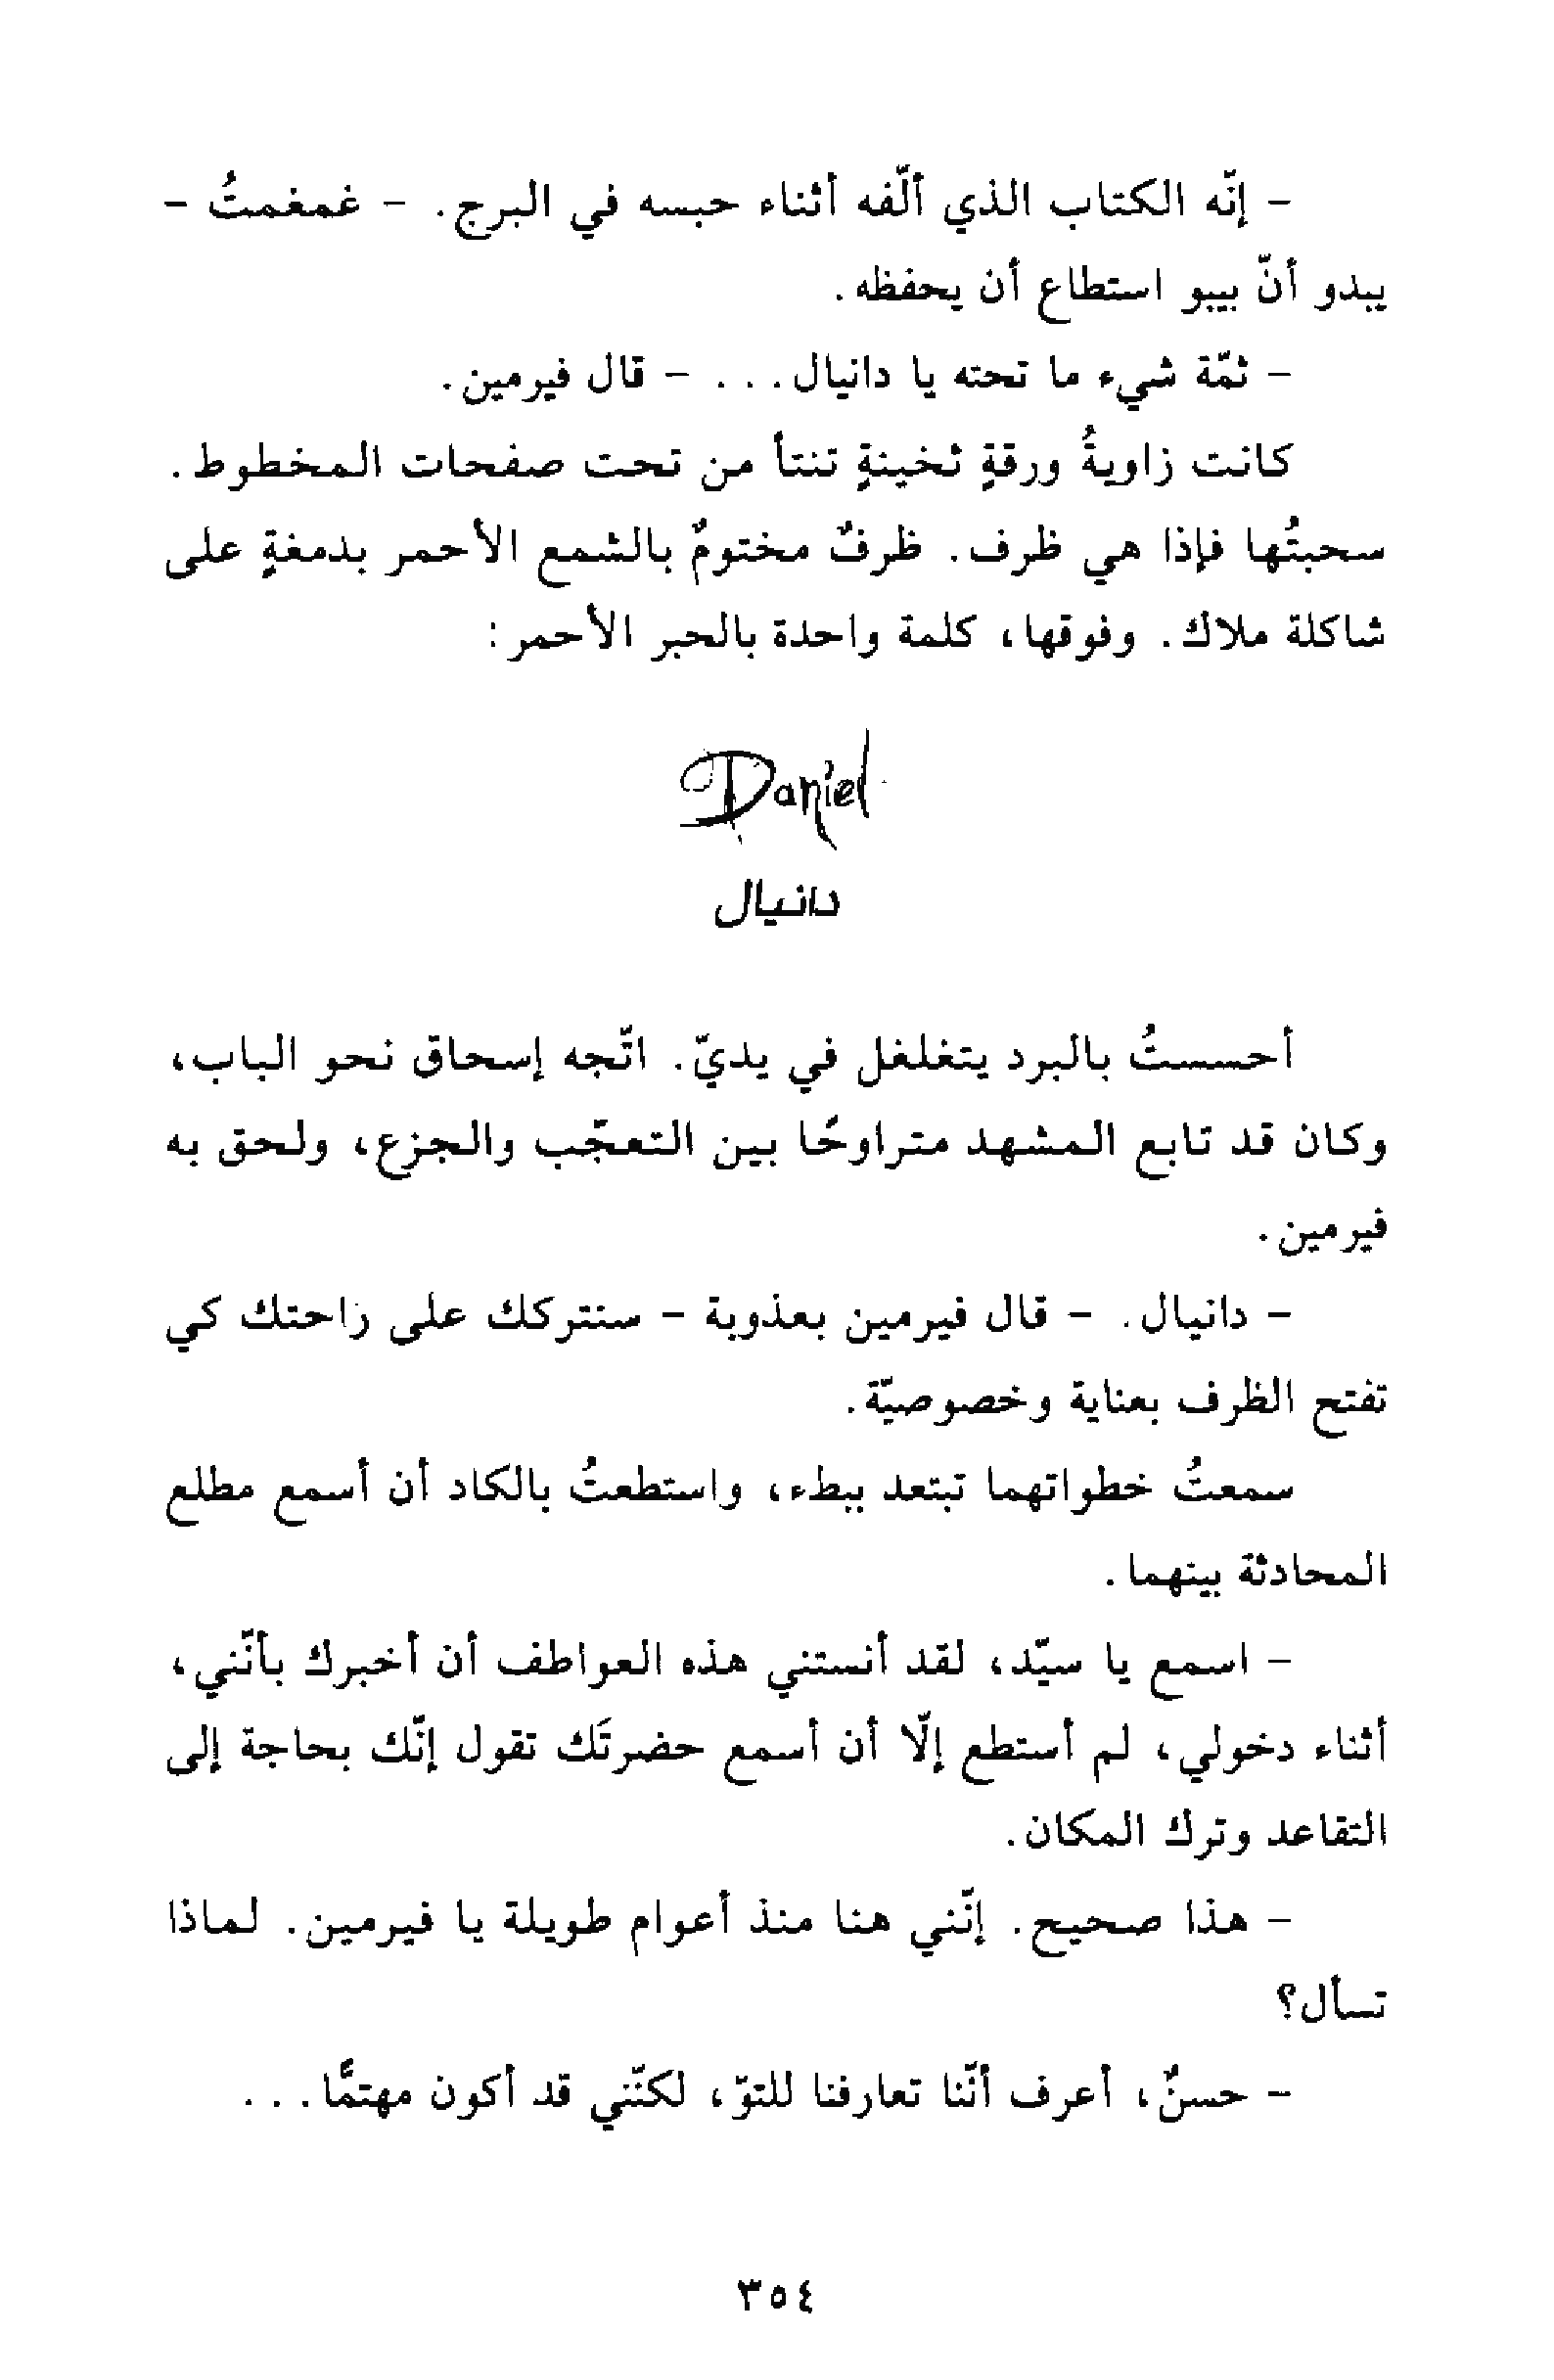 - إنّه الكتاب الذي ألّفه أثناء حبسه في البرج. - غمغمتُ -
يبدو أنّ بيبو استطاع أن يحفظه.
- ثمّة شيء ما تحته يا دانيال... - قال فيرمين.
كانت زاويةُ ورقةٍ ثخينةٍ تنتأ من تحت صفحات المخطوط.
سحبتُها فإذا هي ظرف. ظرفٌ مختومٌ بالشمع الأحمر بدمغةٍ على
شاكلة ملاك. وفوقها، كلمة واحدة بالحبر الأحمر:
Daniel
دانيال
أحسستُ بالبرد يتغلغل في يديّ. اتّجه إسحاق نحو الباب،
وكان قد تابع المشهد متراوحًا بين التعجّب والجزع، ولحق به
فيرمين.
- دانيال. - قال فيرمين بعذوبة - سنتركك على راحتك كي
تفتح الظرف بعناية وخصوصيّة.
سمعتُ خطواتهما تبتعد ببطء، واستطعتُ بالكاد أن أسمع مطلع
المحادثة بينهما.
- اسمع يا سيّد، لقد أنستني هذه العواطف أن أخبرك بأنّني،
أثناء دخولي، لم أستطع إلّا أن أسمع حضرتَك تقول إنّك بحاجة إلى
التقاعد وترك المكان.
- هذا صحيح. إنّني هنا منذ أعوام طويلة يا فيرمين. لماذا
تسأل؟
- حسنٌ، أعرف أنّنا تعارفنا للتوّ، لكنّني قد أكون مهتمًّا...
٣٥٤